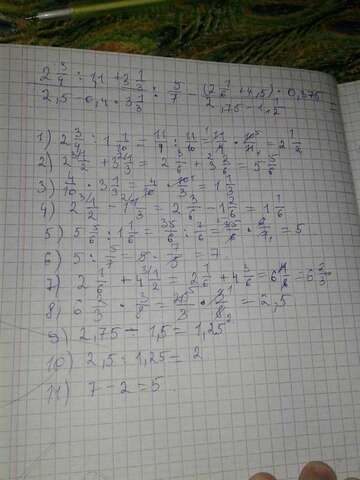 2 3/4 : 1,1 + 3 1/3 / 2,5 - 0,4 · 3 1/3 : 5/7 - (2 1/6 + 4,5) · 0,375 / 2,75 - 1 1/2 =
1) 2 3/4 : 1 1/10 = 11/4 : 11/10 = 11/4 · 10/11 = 2 1/2
2) 2 1/2 + 3 1/3 = 2 3/6 + 3 2/6 = 5 5/6
3) 4/10 · 3 1/3 = 4/10 · 10/3 = 1 1/3
4) 2 1/2 - 1 1/3 = 2 3/6 - 1 2/6 = 1 1/6
5) 5 5/6 : 1 1/6 = 35/6 : 7/6 = 35/6 · 6/7 = 5
6) 5 : 5/7 = 5 · 7/5 = 7
7) 2 1/6 + 4 1/2 = 2 1/6 + 4 3/6 = 6 4/6 = 6 2/3
8) 6 2/3 · 3/8 = 20/3 · 3/8 = 2,5
9) 2,75 - 1,5 = 1,25
10) 2,5 : 1,25 = 2
11) 7 - 2 = 5